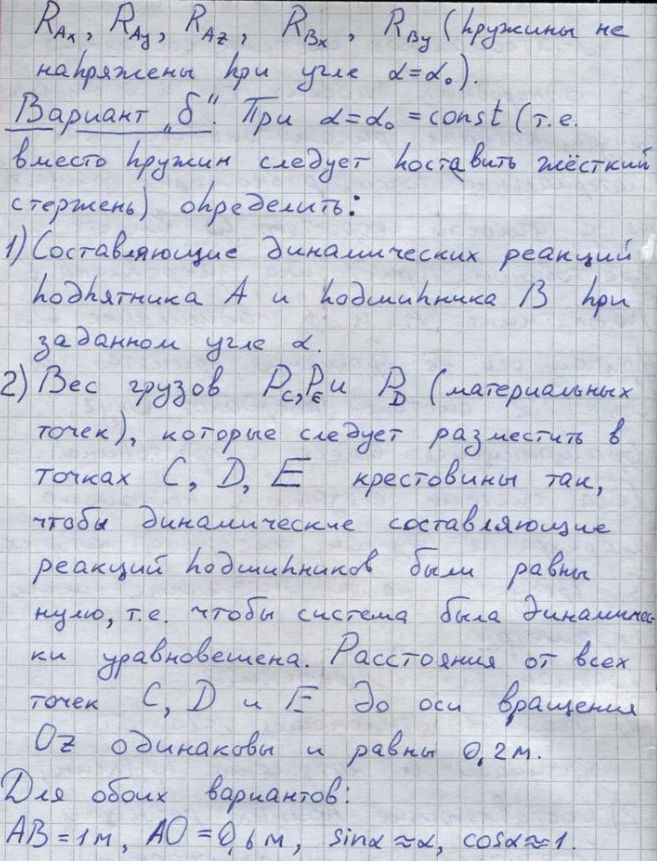 R_Ax, R_Ay, R_Az, R_Bx, R_By (пружины не
напряжены при угле α=α₀).
Вариант „б". При α=α₀=const (т.е.
вместо пружин следует поставить жёсткий
стержень) определить:
1) Составляющие динамических реакций
подпятника A и подшипника B при
заданном угле α.
2) Вес грузов P_C, P_E и P_D (материальных
точек), которые следует разместить в
точках C, D, E крестовины так,
чтобы динамические составляющие
реакций подшипников были равны
нулю, т.е. чтобы система была динамичес-
ки уравновешена. Расстояния от всех
точек C, D и E до оси вращения
Oz одинаковы и равны 0,2м.
Для обоих вариантов:
AB=1м, AO=0,6м, sinα≈α, cosα≈1.